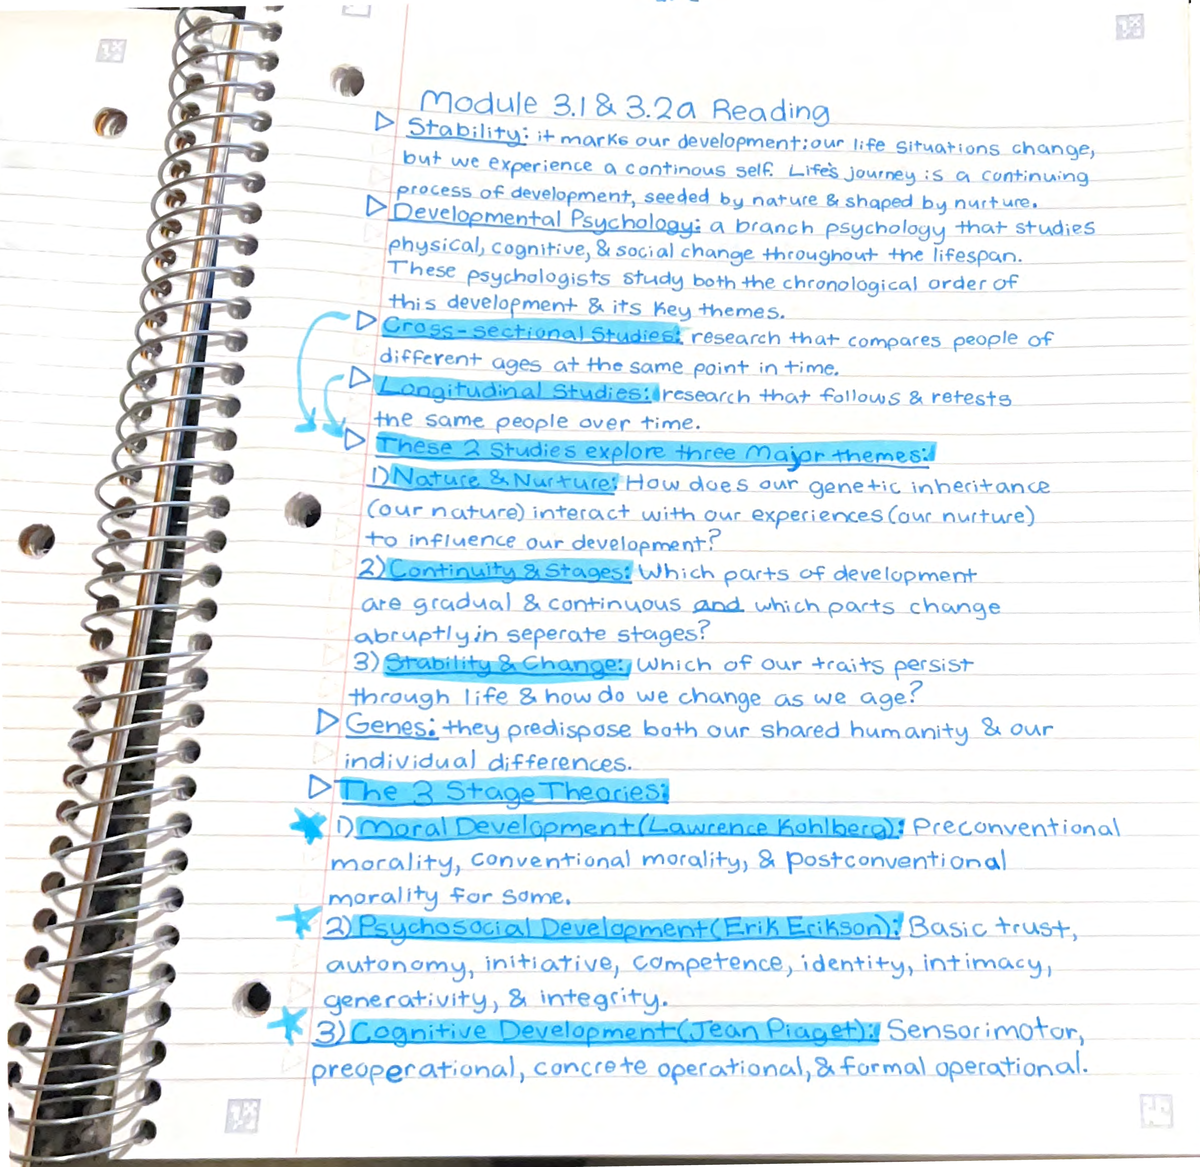 Module 3.1 & 3.2a Reading
▷ Stability: it marks our development; our life situations change,
but we experience a continous self. Life's journey is a continuing
process of development, seeded by nature & shaped by nurture.
▷ Developmental Psychology: a branch psychology that studies
physical, cognitive, & social change throughout the lifespan.
These psychologists study both the chronological order of
this development & its key themes.
▷ Cross-sectional Studies: research that compares people of
different ages at the same point in time.
▷ Longitudinal Studies: research that follows & retests
the same people over time.
▷ These 2 Studies explore three Major themes:
1) Nature & Nurture: How does our genetic inheritance
(our nature) interact with our experiences (our nurture)
to influence our development?
2) Continuity & Stages: Which parts of development
are gradual & continuous and which parts change
abruptly in seperate stages?
3) Stability & Change: Which of our traits persist
through life & how do we change as we age?
▷ Genes: they predispose both our shared humanity & our
individual differences.
▷ The 3 Stage Theories:
1) Moral Development (Lawrence Kohlberg): Preconventional
morality, conventional morality, & postconventional
morality for some.
2) Psychosocial Development (Erik Erikson): Basic trust,
autonomy, initiative, competence, identity, intimacy,
generativity, & integrity.
3) Cognitive Development (Jean Piaget): Sensorimotor,
preoperational, concrete operational, & formal operational.